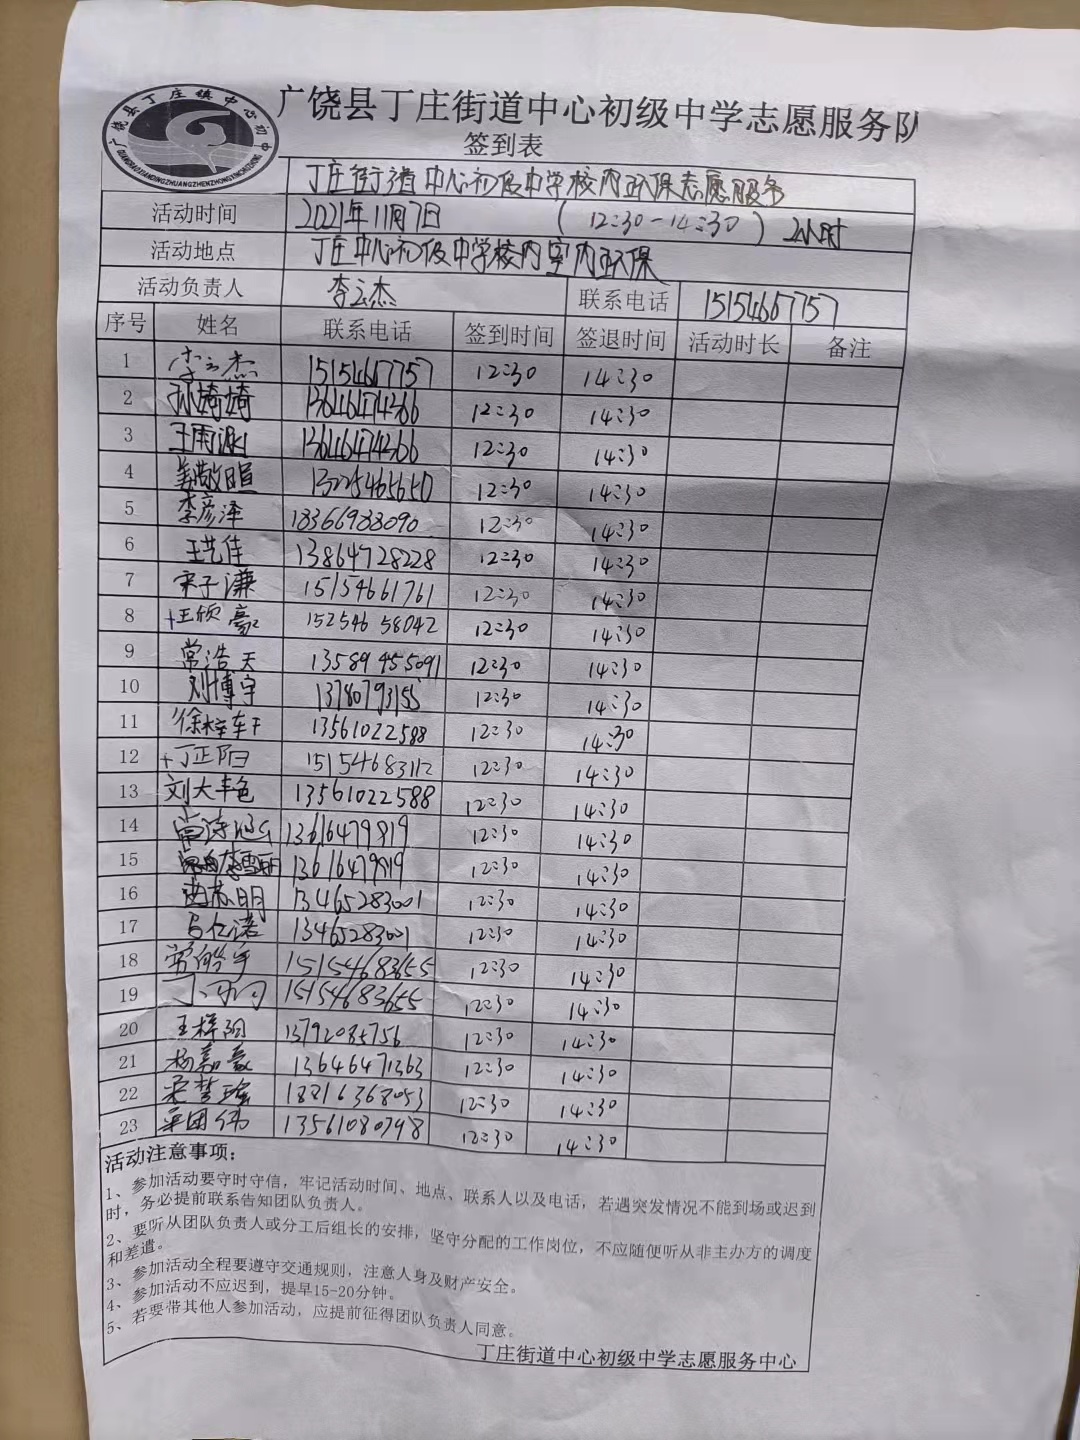 广饶县丁庄镇中心初中
GUANGRAOXIANDINGZHUANGZHENZHONGXINCHUZHONG
广饶县丁庄街道中心初级中学志愿服务队
签到表
丁庄街道中心初级中学校内环保志愿服务
活动时间 2021年11月7日 (12:30-14:30) 2小时
活动地点 丁庄中心初级中学校内室内环保
活动负责人 李云杰 联系电话 15154667757
序号 姓名 联系电话 签到时间 签退时间 活动时长 备注
1 李云杰 15154667757 12:30 14:30
2 孙婍婍 13646474366 12:30 14:30
3 王雨 13646474366 12:30 14:30
4 姜敬暄 13225465650 12:30 14:30
5 李彦泽 18366983090 12:30 14:30
6 王艺佳 13864728228 12:30 14:30
7 宋子谦 15154661761 12:30 14:30
8 +王欣豪 15254658042 12:30 14:30
9 常浩天 13589455091 12:30 14:30
10 刘博宇 13780793155 12:30 14:30
11 徐梓轩 13561022588 12:30 14:30
12 +丁正阳 15154683112 12:30 14:30
13 刘大丰色 13561022588 12:30 14:30
14 常诗涵 13616479819 12:30 14:30
15 李雪玥 13616479819 12:30 14:30
16 13465283001 12:30 14:30
17 马仁诺 13465283001 12:30 14:30
18 常皓宇 15154683655 12:30 14:30
19 丁 15154683655 12:30 14:30
20 王梓阳 13792085756 12:30 14:30
21 杨嘉豪 13646471363 12:30 14:30
22 梦瑶 18216368053 12:30 14:30
23 伟 13561080798 12:30 14:30
活动注意事项:
1、参加活动要守时守信,牢记活动时间、地点、联系人以及电话,若遇突发情况不能到场或迟到
时,务必提前联系告知团队负责人。
2、要听从团队负责人或分工后组长的安排,坚守分配的工作岗位,不应随便听从非主办方的调度
和差遣。
3、参加活动全程要遵守交通规则,注意人身及财产安全。
4、参加活动不应迟到,提早15-20分钟。
5、若要带其他人参加活动,应提前征得团队负责人同意。
丁庄街道中心初级中学志愿服务中心